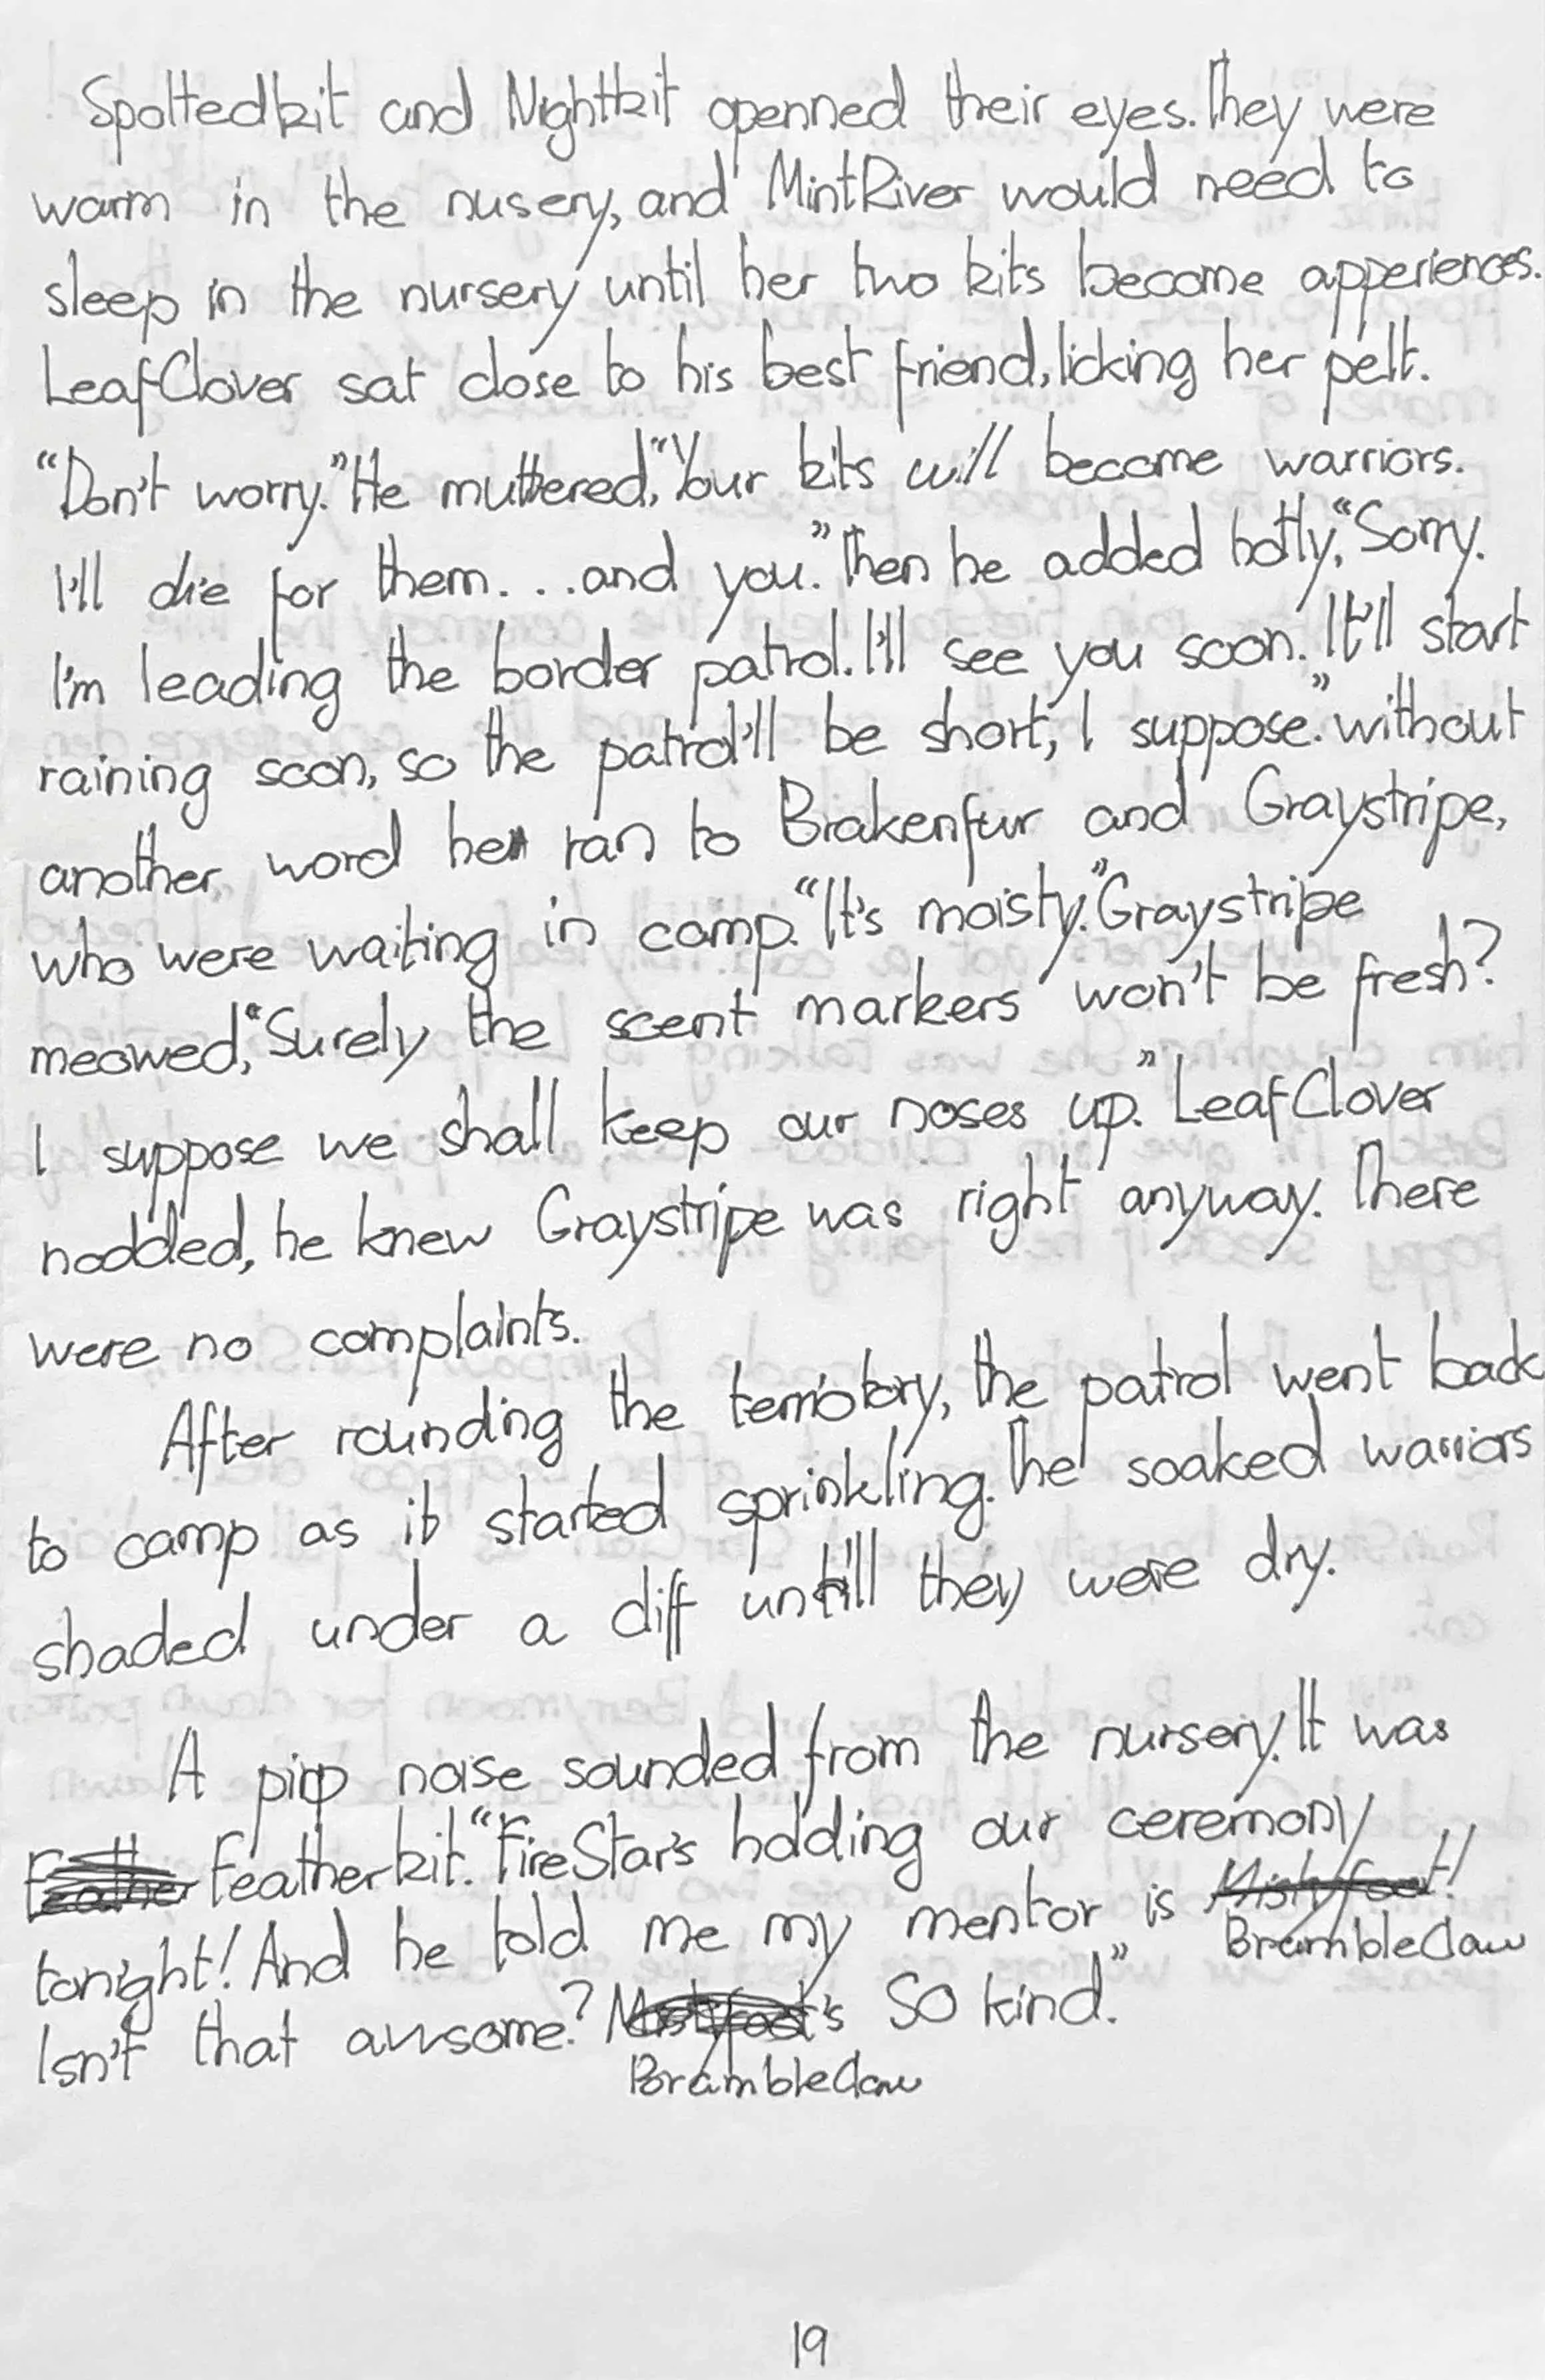 Spottedkit and Nightkit openned their eyes. They were
warm in the nusery, and MintRiver would need to
sleep in the nursery until her two kits become apperiences.
LeafClover sat close to his best friend, licking her pelt.
“Don't worry.” He muttered, “Your kits will become warriors.
I'll die for them. . . and you.” Then he added hotly, “Sorry.
I'm leading the border patrol. I'll see you soon. It'll start
raining soon, so the patrol'll be short, I suppose.” without
another word he ran to Brakenfur and Graystripe,
who were waiting in camp. “It's moisty.” Graystripe
meowed, “Surely the scent markers won't be fresh?
I suppose we shall keep our noses up.” LeafClover
nodded, he knew Graystripe was right anyway. There
were no complaints.
After rounding the territory, the patrol went back
to camp as it started sprinkling. The soaked warriors
shaded under a cliff untill they were dry.
A pip noise sounded from the nursery. It was
Feather Featherkit. “FireStar's holding our ceremony
tonight! And he told me my mentor is Mistyfoot!
BrambleClaw
Isn't that awsome? Mistyfoot's SO kind.”
BrambleClaw
19